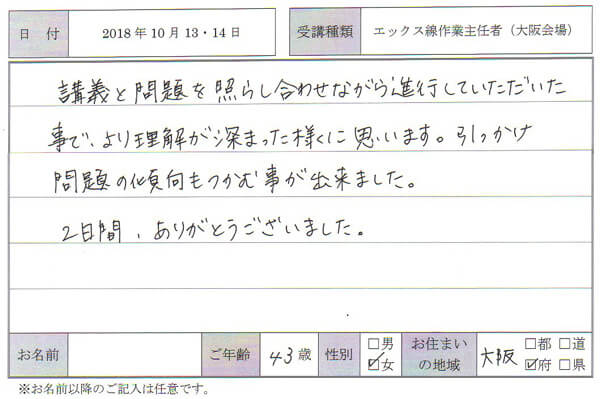 日付 2018年10月13・14日 受講種類 エックス線作業主任者（大阪会場）
講義と問題を照らし合わせながら進行していただいた
事で、より理解が深まった様くに思います。引っかけ
問題の傾向もつかむ事が出来ました。
2日間、ありがとうございました。
お名前 ご年齢 43歳 性別 □男 ☑女 お住まいの地域 大阪 □都 □道 ☑府 □県
※お名前以降のご記入は任意です。